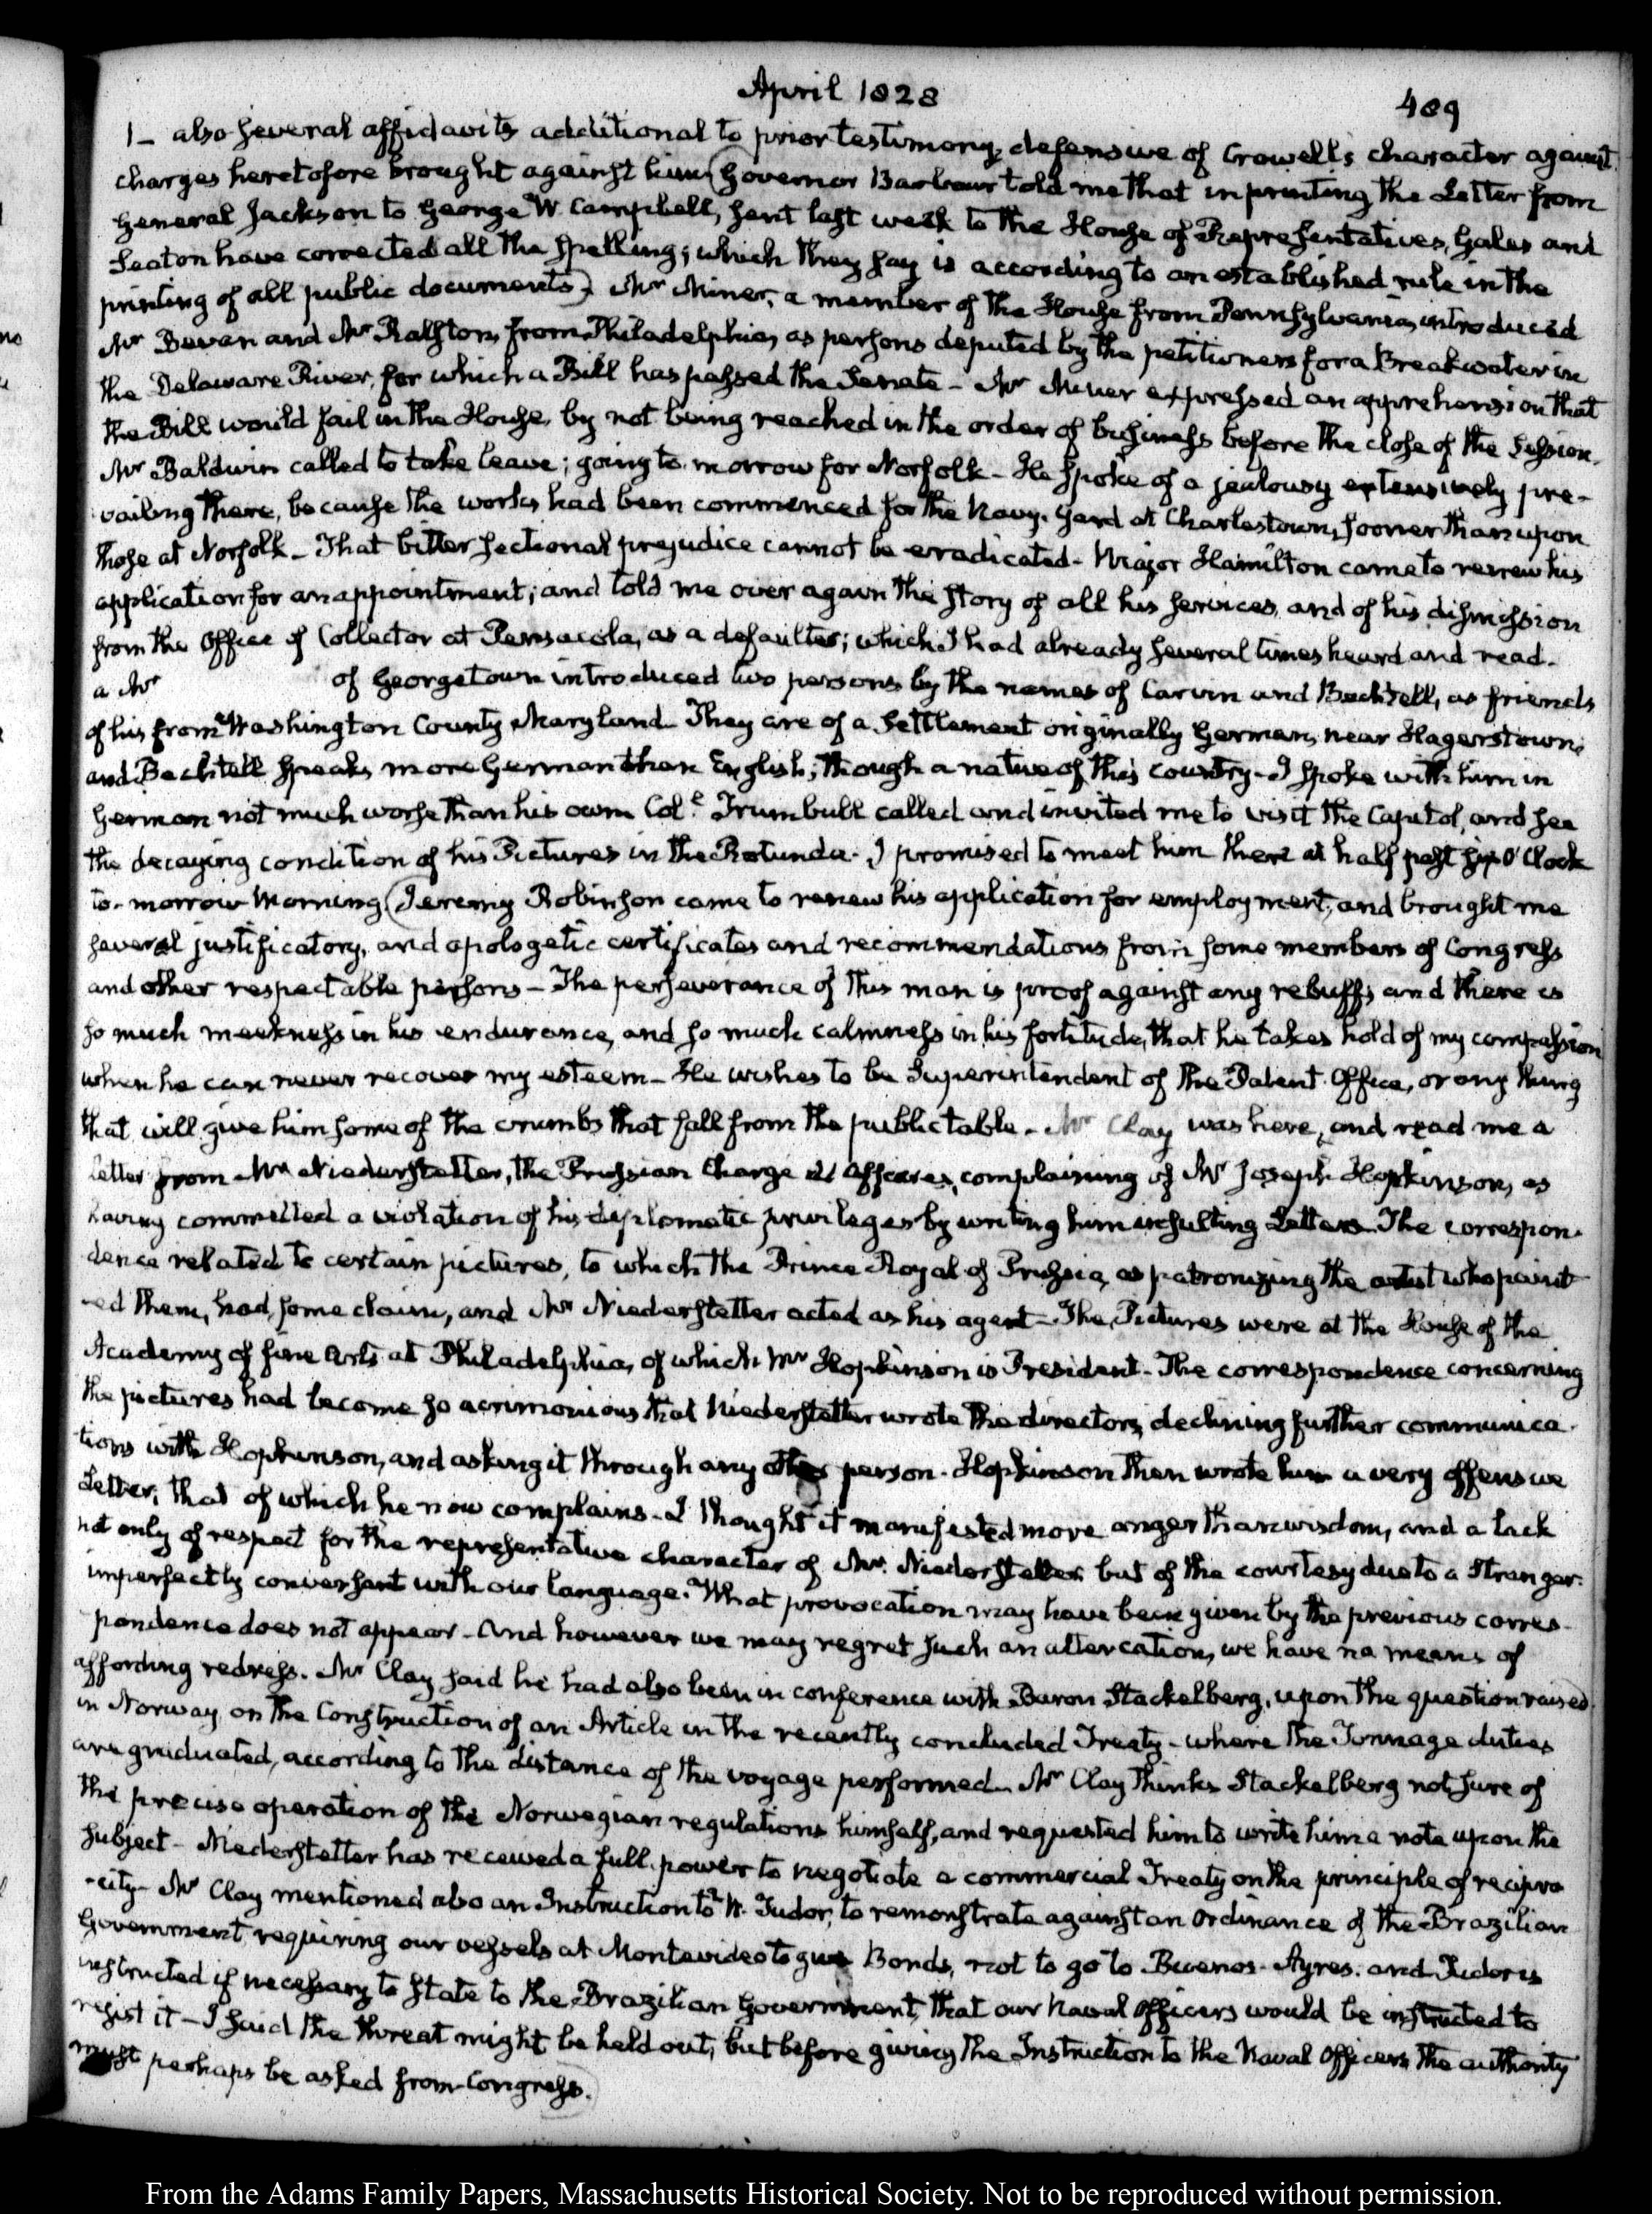 April 1828
489
1_ also several affidavits additional to prior testimony, defensive of Crowell's character against
charges heretofore brought against him (Governor Barbour told me that in printing the Letter from
General Jackson to George W. Campbell, sent last week to the House of Representatives, Gales and
Seaton have corrected all the spelling; which they say is according to an established rule in the
printing of all public documents). Mr Miner, a member of the House from Pennsylvania, introduced
Mr Bevan and Mr Ralston, from Philadelphia, as persons deputed by the petitioners for a Breakwater in
the Delaware River, for which a Bill has passed the Senate - Mr Miner expressed an apprehension that
the Bill would fail in the House, by not being reached in the order of business before the close of the Session.
Mr Baldwin called to take leave; going to-morrow for Norfolk - He spoke of a jealousy extensively pre-
vailing there, because the works had been commenced for the Navy-Yard at Charlestown, sooner than upon
those at Norfolk - That bitter sectional prejudice cannot be eradicated - Major Hamilton came to renew his
application for an appointment; and told me over again the story of all his services, and of his dismission
from the Office of Collector at Pensacola, as a defaulter; which I had already several times heard and read.
a Mr of Georgetown introduced two persons by the names of Carvin and Bechtell, as friends
of his from Washington County Maryland - They are of a Settlement originally German, near Hagerstown;
and Bechtell speaks more German than English, though a native of this country - I spoke with him in
German not much worse than his own Coll. Trumbull called and invited me to visit the Capitol, and see
the decaying condition of his Pictures in the Rotunda. I promised to meet him there at half past six O'Clock
to-morrow Morning (Jeremy Robinson came to renew his application for employment, and brought me
several justificatory, and apologetic certificates and recommendations from some members of Congress
and other respectable persons - The perseverance of this man is proof against any rebuffs and there is
so much meekness in his endurance, and so much calmness in his fortitude, that he takes hold of my compassion
when he can never recover my esteem - He wishes to be Superintendent of the Patent Office, or any thing
that will give him some of the crumbs that fall from the public table - Mr Clay was here, and read me a
letter from Mr Niederstetter, the Prussian Charge d'Affaires, complaining of Mr Joseph Hopkinson, as
having committed a violation of his diplomatic privileges by writing him insulting Letters. The correspon-
dence related to certain pictures, to which the Prince Royal of Prussia, as patronizing the artist who paint
-ed them, had some claim, and Mr Niederstetter acted as his agent - The Pictures were at the House of the
Academy of fine Arts at Philadelphia, of which Mr Hopkinson is President - The correspondence concerning
the pictures had become so acrimonious that Niederstetter wrote the directors, declining further communica-
tions with Hopkinson, and asking it through any other person. Hopkinson then wrote him a very offensive
Letter, that of which he now complains - I thought it manifested more anger than wisdom, and a lack
not only of respect for the representative character of Mr. Niederstetter but of the courtesy due to a Stranger
imperfectly conversant with our language. What provocation may have been given by the previous corres-
pondence does not appear - And however we may regret such an altercation, we have no means of
affording redress. Mr Clay said he had also been in conference with Baron Stackelberg, upon the question raised
in Norway, on the Construction of an Article in the recently concluded Treaty - where the Tonnage duties
are graduated, according to the distance of the voyage performed - Mr Clay thinks Stackelberg not sure of
the precise operation of the Norwegian regulations himself, and requested him to write him a note upon the
subject - Niederstetter has received a full power to negotiate a commercial Treaty on the principle of recipro
-city - Mr Clay mentioned also an Instruction to W. Tudor, to remonstrate against an Ordinance of the Brazilian
Government, requiring our vessels at Montevideo to give Bonds, not to go to Buenos-Ayres. and Tudor is
instructed if necessary to state to the Brazilian Government, that our Naval Officers would be instructed to
resist it - I said the threat might be held out, but before giving the Instruction to the Naval Officers, the authority
must perhaps be asked from Congress.
From the Adams Family Papers, Massachusetts Historical Society. Not to be reproduced without permission.